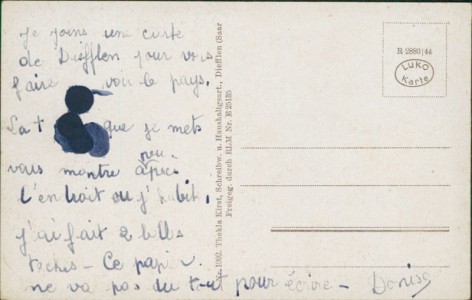 je joins une carte
de Diefflen pour vous
faire voir le pays.
La t que je mets
vous montre à peu
près
l'endroit ou j'habite,
j'ai fait 2 belles
taches - Ce papier
ne va pas du tout pour écrire - Denise
Nr. 1302. Thekla Kirst, Schreibw. u. Haushaltgsart., Diefflen (Saar
Freigeg. durch RLM Nr. E 25135
R 2880/44
LUKO
Karte